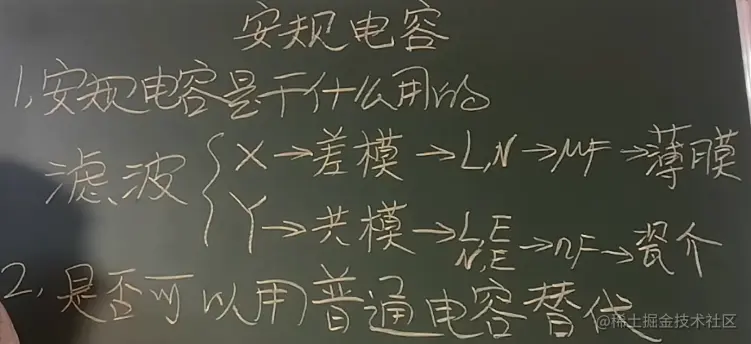 安规电容
1,安规电容是干什么用的
滤波 { X→差模→L,N→μF→薄膜
Y→共模→L,E N,E→nF→瓷介
2,是否可以用普通电容替代
@稀土掘金技术社区